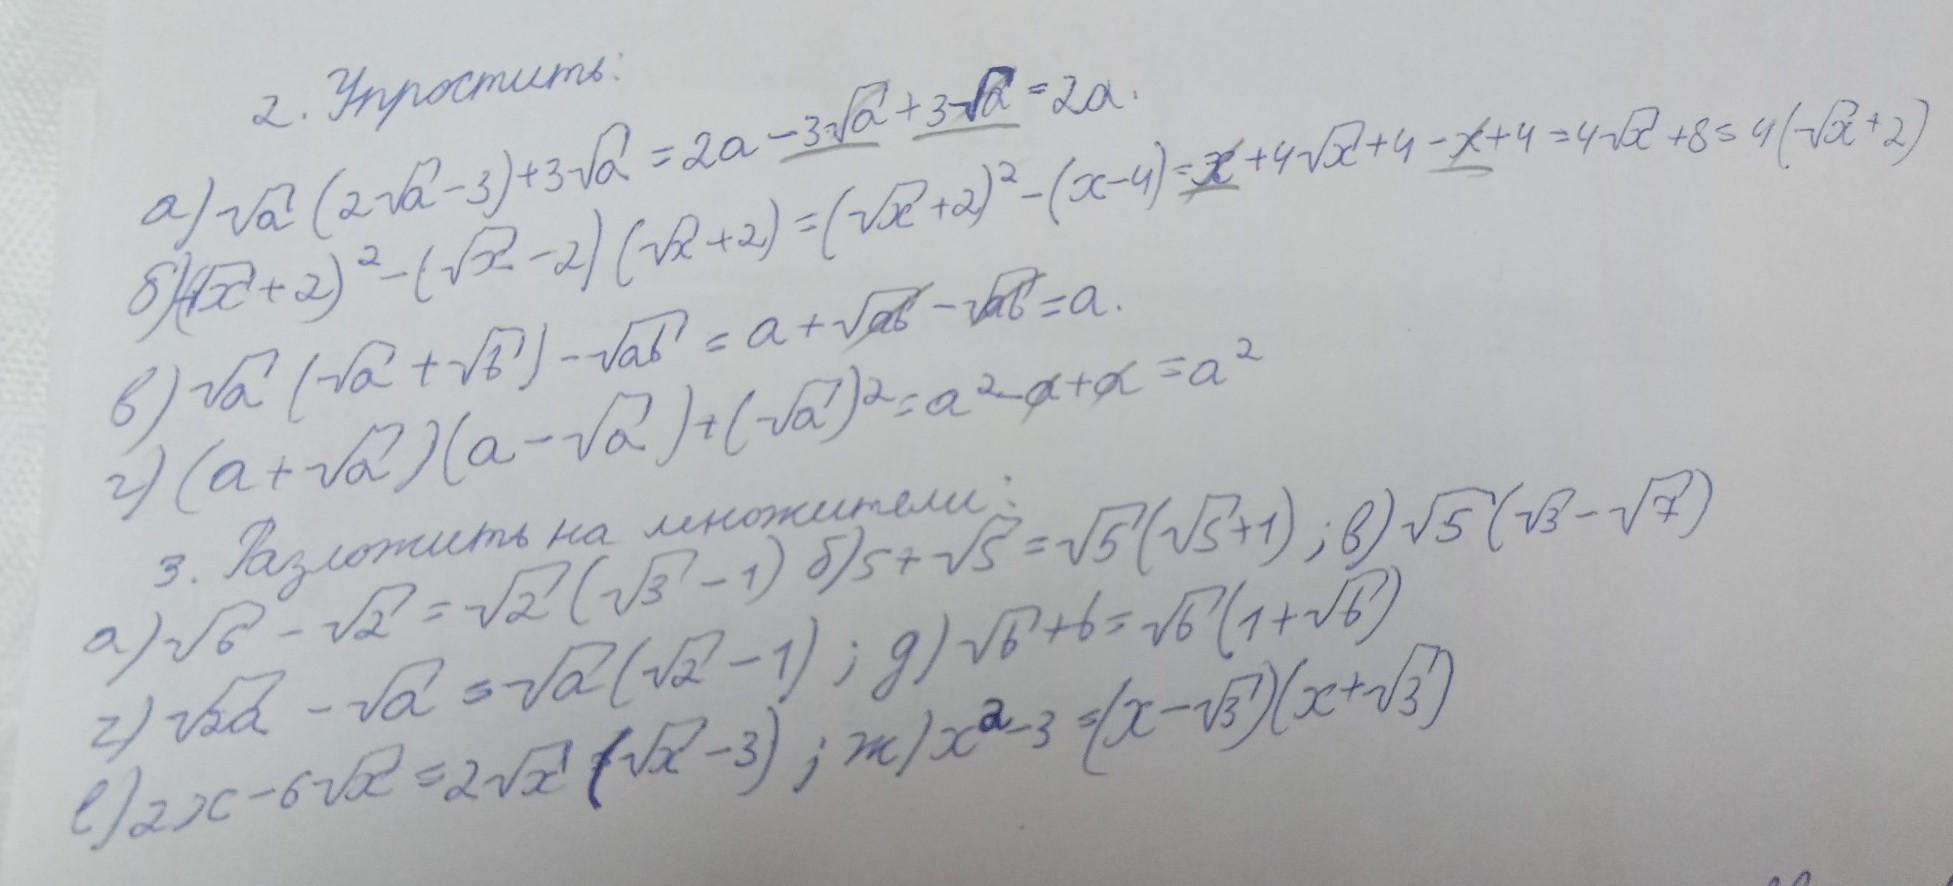 2. Упростить:
а) √a (2√a - 3) + 3√a = 2a - 3√a + 3√a = 2a.
б) (√x + 2)² - (√x - 2)(√x + 2) = (√x + 2)² - (x - 4) = x + 4√x + 4 - x + 4 = 4√x + 8 = 4(√x + 2)
в) √a (√a + √b) - √ab = a + √ab - √ab = a.
г) (a + √a)(a - √a) + (√a)² = a² - a + a = a²
3. Разложить на множители:
а) √6 - √2 = √2 (√3 - 1) б) 5 + √5 = √5 (√5 + 1) ; в) √5 (√3 - √7)
г) √2a - √a = √a (√2 - 1) ; д) √b + b = √b (1 + √b)
е) 2x - 6√x = 2√x (√x - 3) ; ж) x² - 3 = (x - √3)(x + √3)